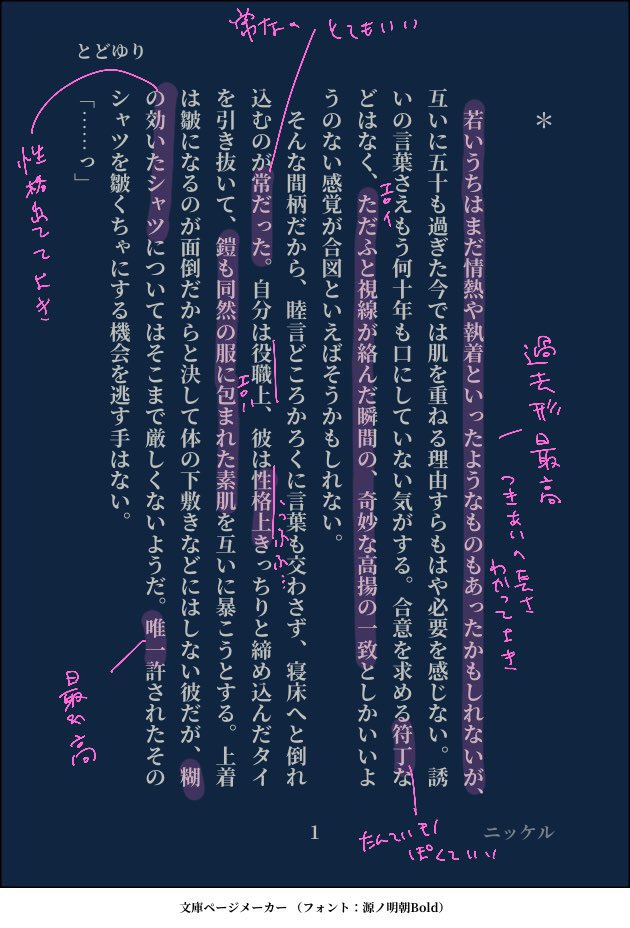 とどゆり
＊
若いうちはまだ情熱や執着といったようなものもあったかもしれないが、
互いに五十も過ぎた今では肌を重ねる理由すらもはや必要を感じない。誘
いの言葉さえもう何十年も口にしていない気がする。合意を求める符丁な
どはなく、ただふと視線が絡んだ瞬間の、奇妙な高揚の一致としかいいよ
うのない感覚が合図といえばそうかもしれない。
そんな間柄だから、睦言どころかろくに言葉も交わさず、寝床へと倒れ
込むのが常だった。自分は役職上、彼は性格上きっちりと締め込んだタイ
を引き抜いて、鎧も同然の服に包まれた素肌を互いに暴こうとする。上着
は皺になるのが面倒だからと決して体の下敷きなどにはしない彼だが、糊
の効いたシャツについてはそこまで厳しくないようだ。唯一許されたその
シャツを皺くちゃにする機会を逃す手はない。
「……っ」
常なの とてもいい
過去形最高
つきあいの長さ
わかってよき
エロイ
たんていものっぽくていい
うふふ…
エロい
性格出ててよき
最&高
1
ニッケル
文庫ページメーカー （フォント：源ノ明朝Bold）